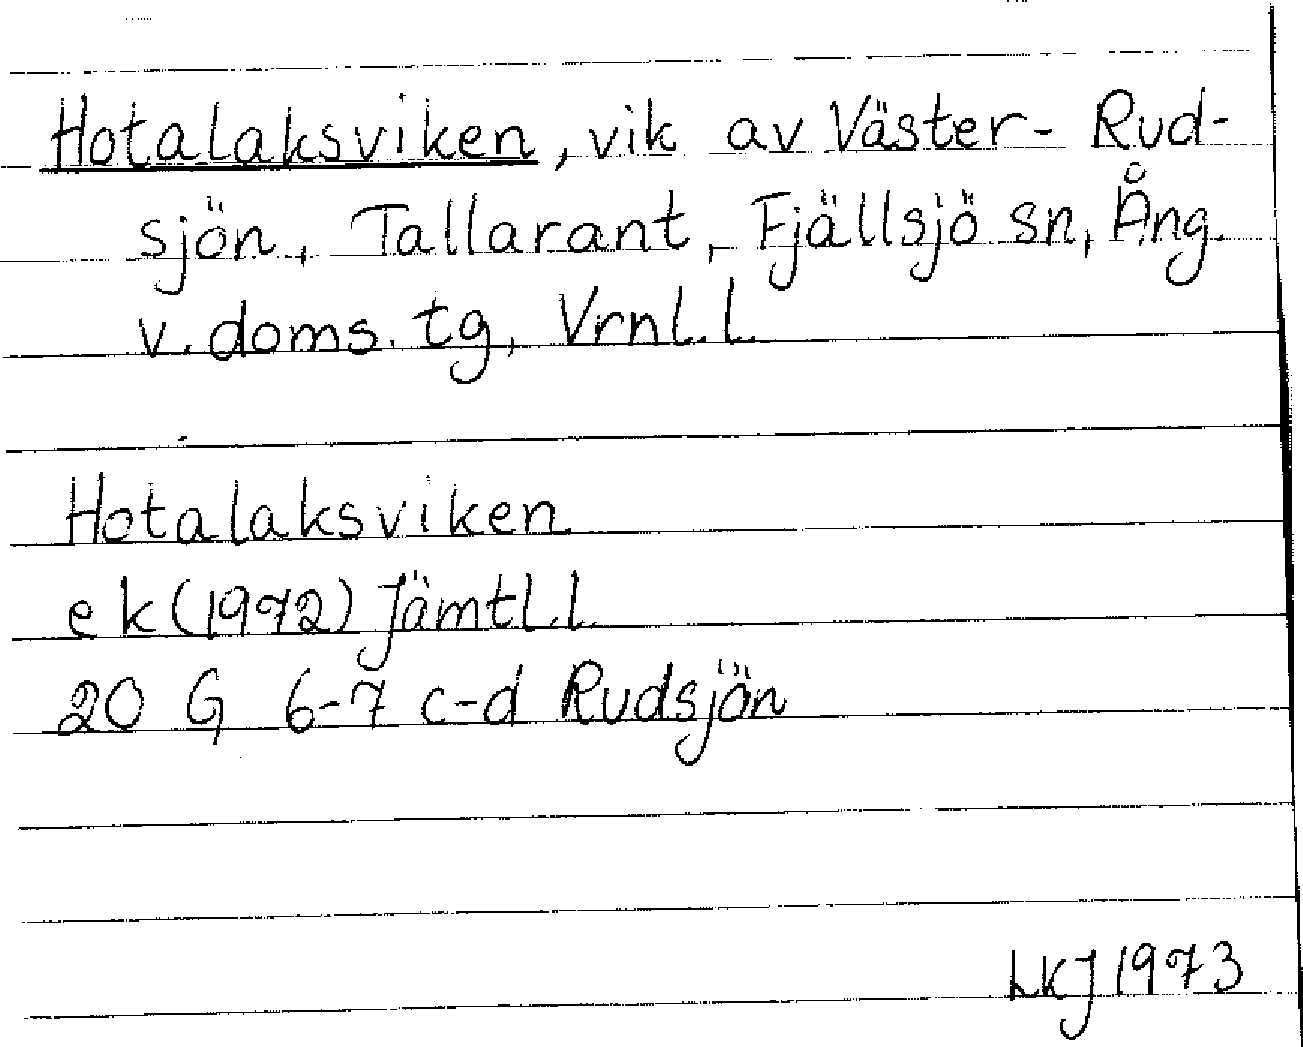 Hotalaksviken, vik av Väster-Rud-
sjön, Tallarant, Fjällsjö sn, Ång.
v. doms. tg, Vrnl. l.
Hotalaksviken
ek (1972) Jämtl. l.
20 G 6-7 c-d Rudsjön
LKJ 1973